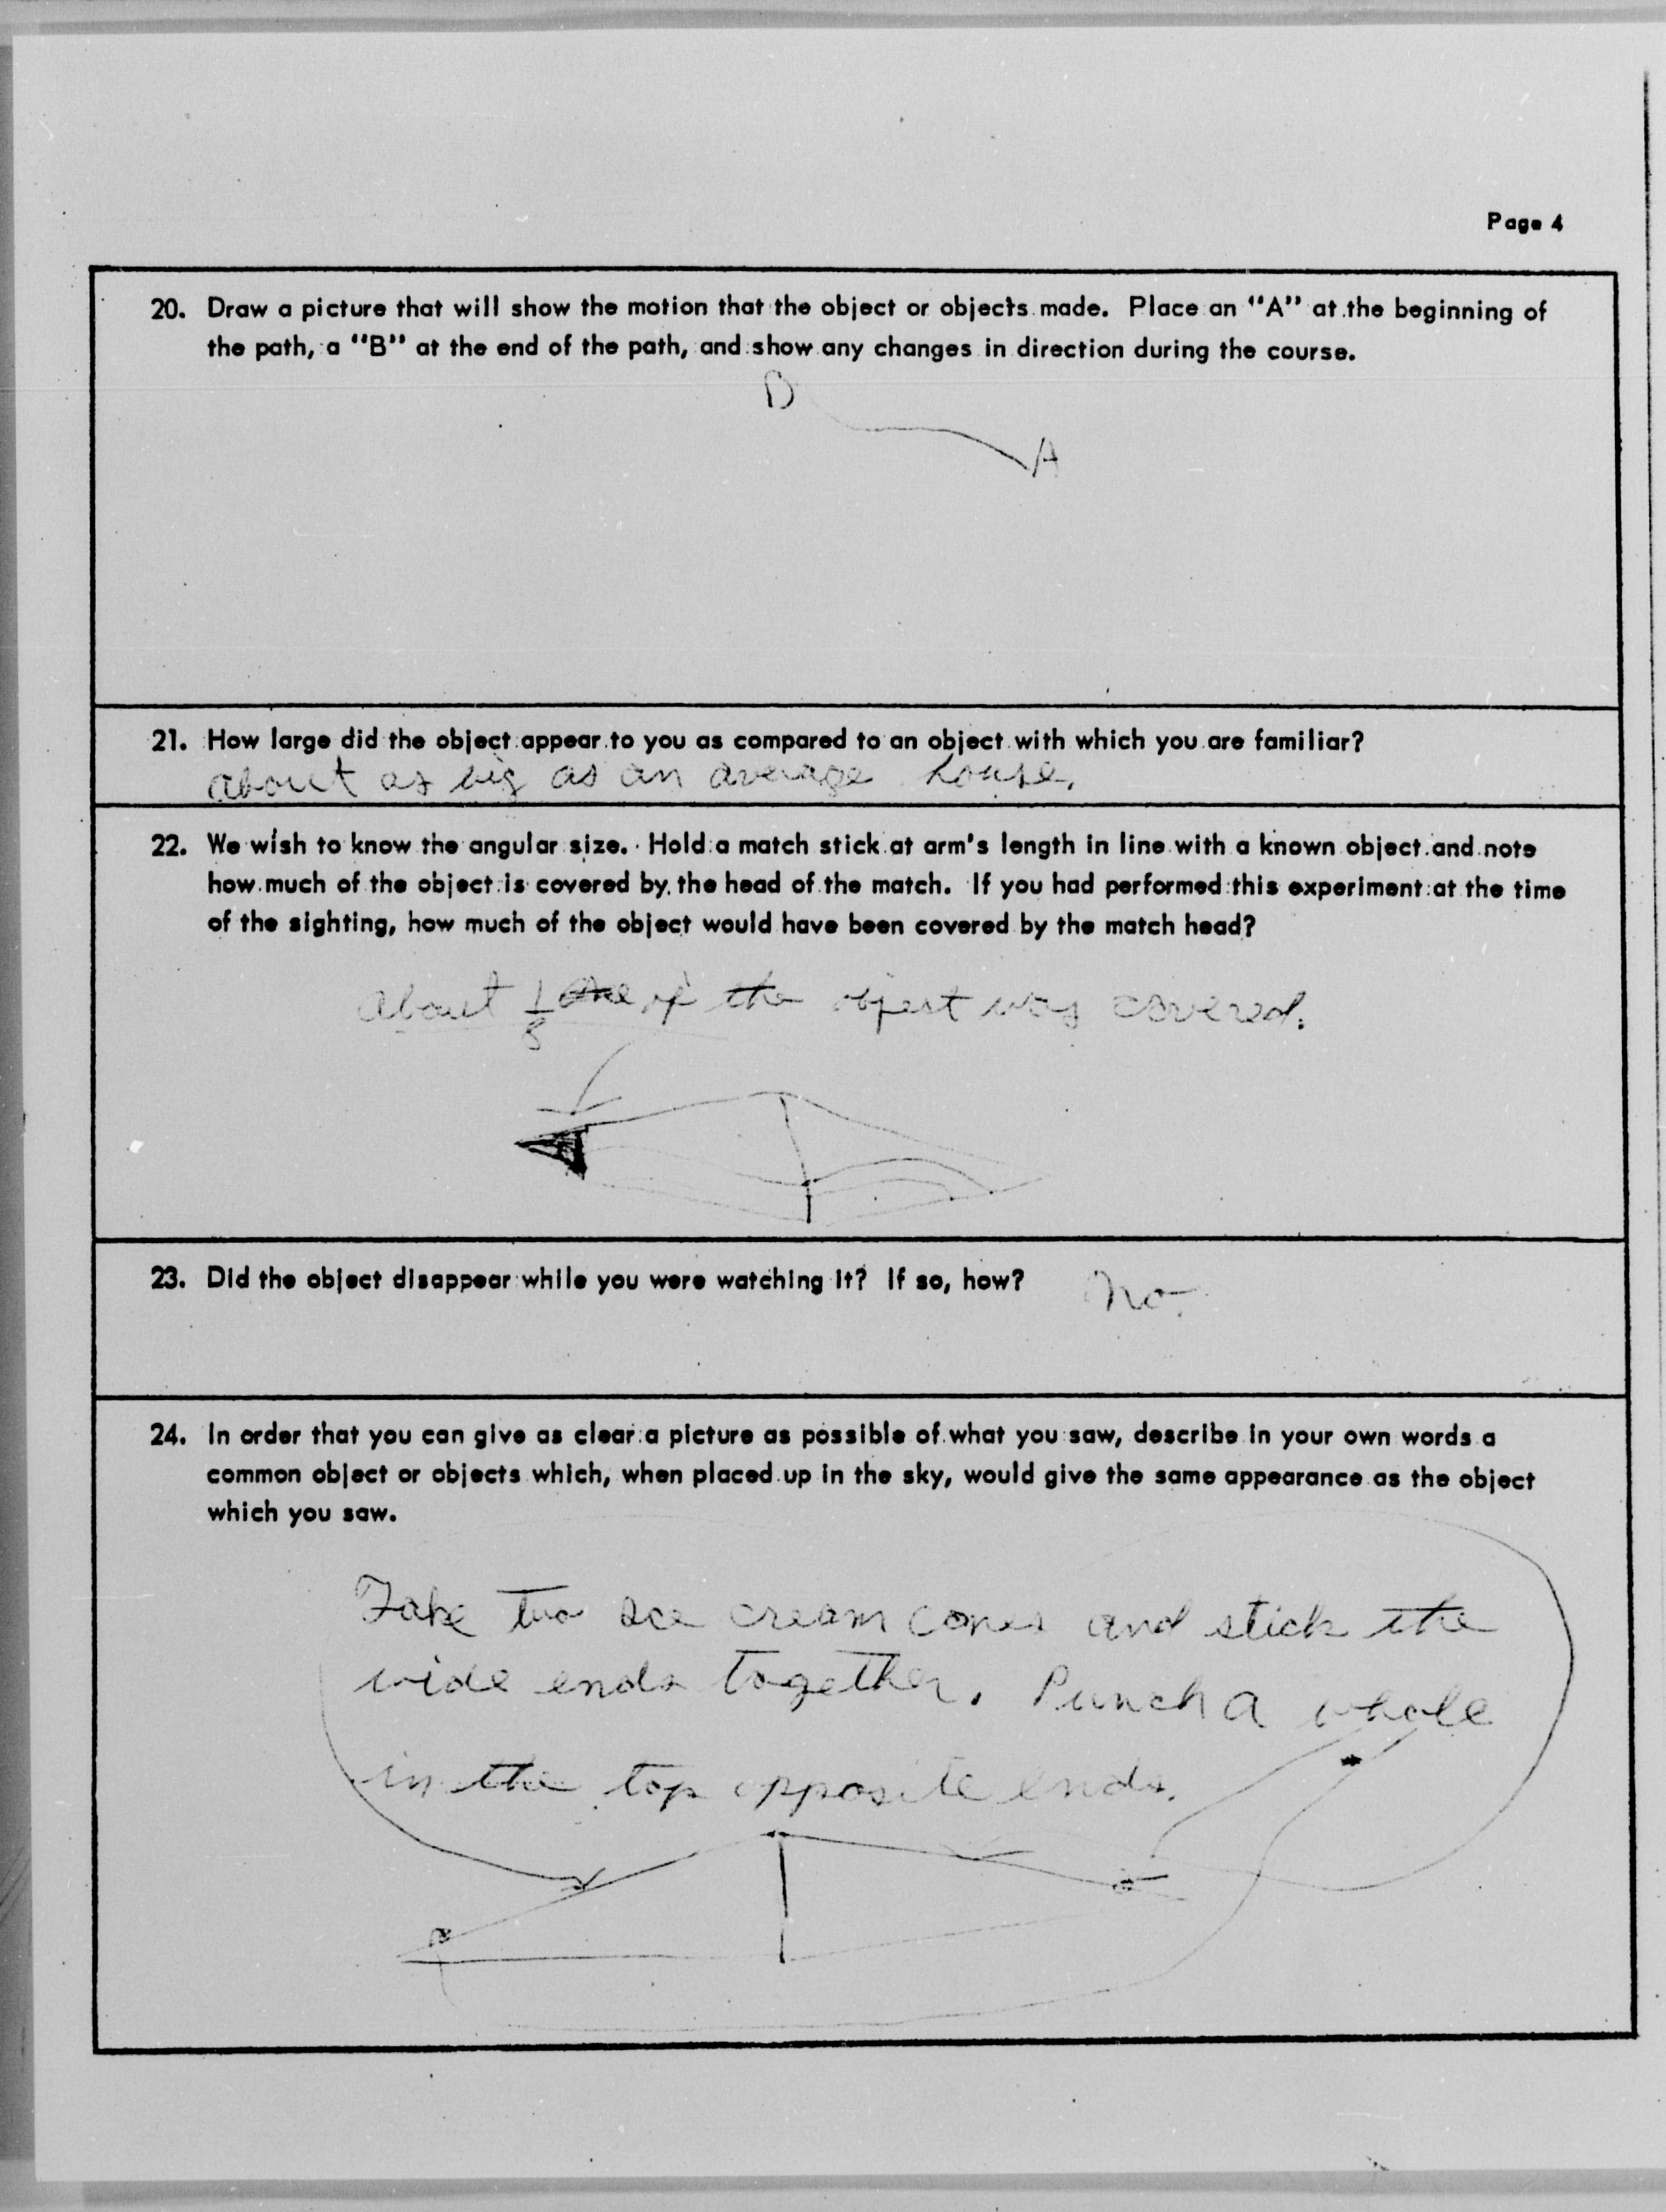 Page 4
20. Draw a picture that will show the motion that the object or objects made. Place an "A" at the beginning of
the path, a "B" at the end of the path, and show any changes in direction during the course.
B
A
21. How large did the object appear to you as compared to an object with which you are familiar?
about as big as an average house.
22. We wish to know the angular size. Hold a match stick at arm's length in line with a known object and note
how much of the object is covered by the head of the match. If you had performed this experiment at the time
of the sighting, how much of the object would have been covered by the match head?
About 1/8 of the object was covered.
23. Did the object disappear while you were watching it? If so, how? No.
24. In order that you can give as clear a picture as possible of what you saw, describe in your own words a
common object or objects which, when placed up in the sky, would give the same appearance as the object
which you saw.
Take two ice cream cones and stick the
wide ends together. Punch a whole
in the top opposite ends.